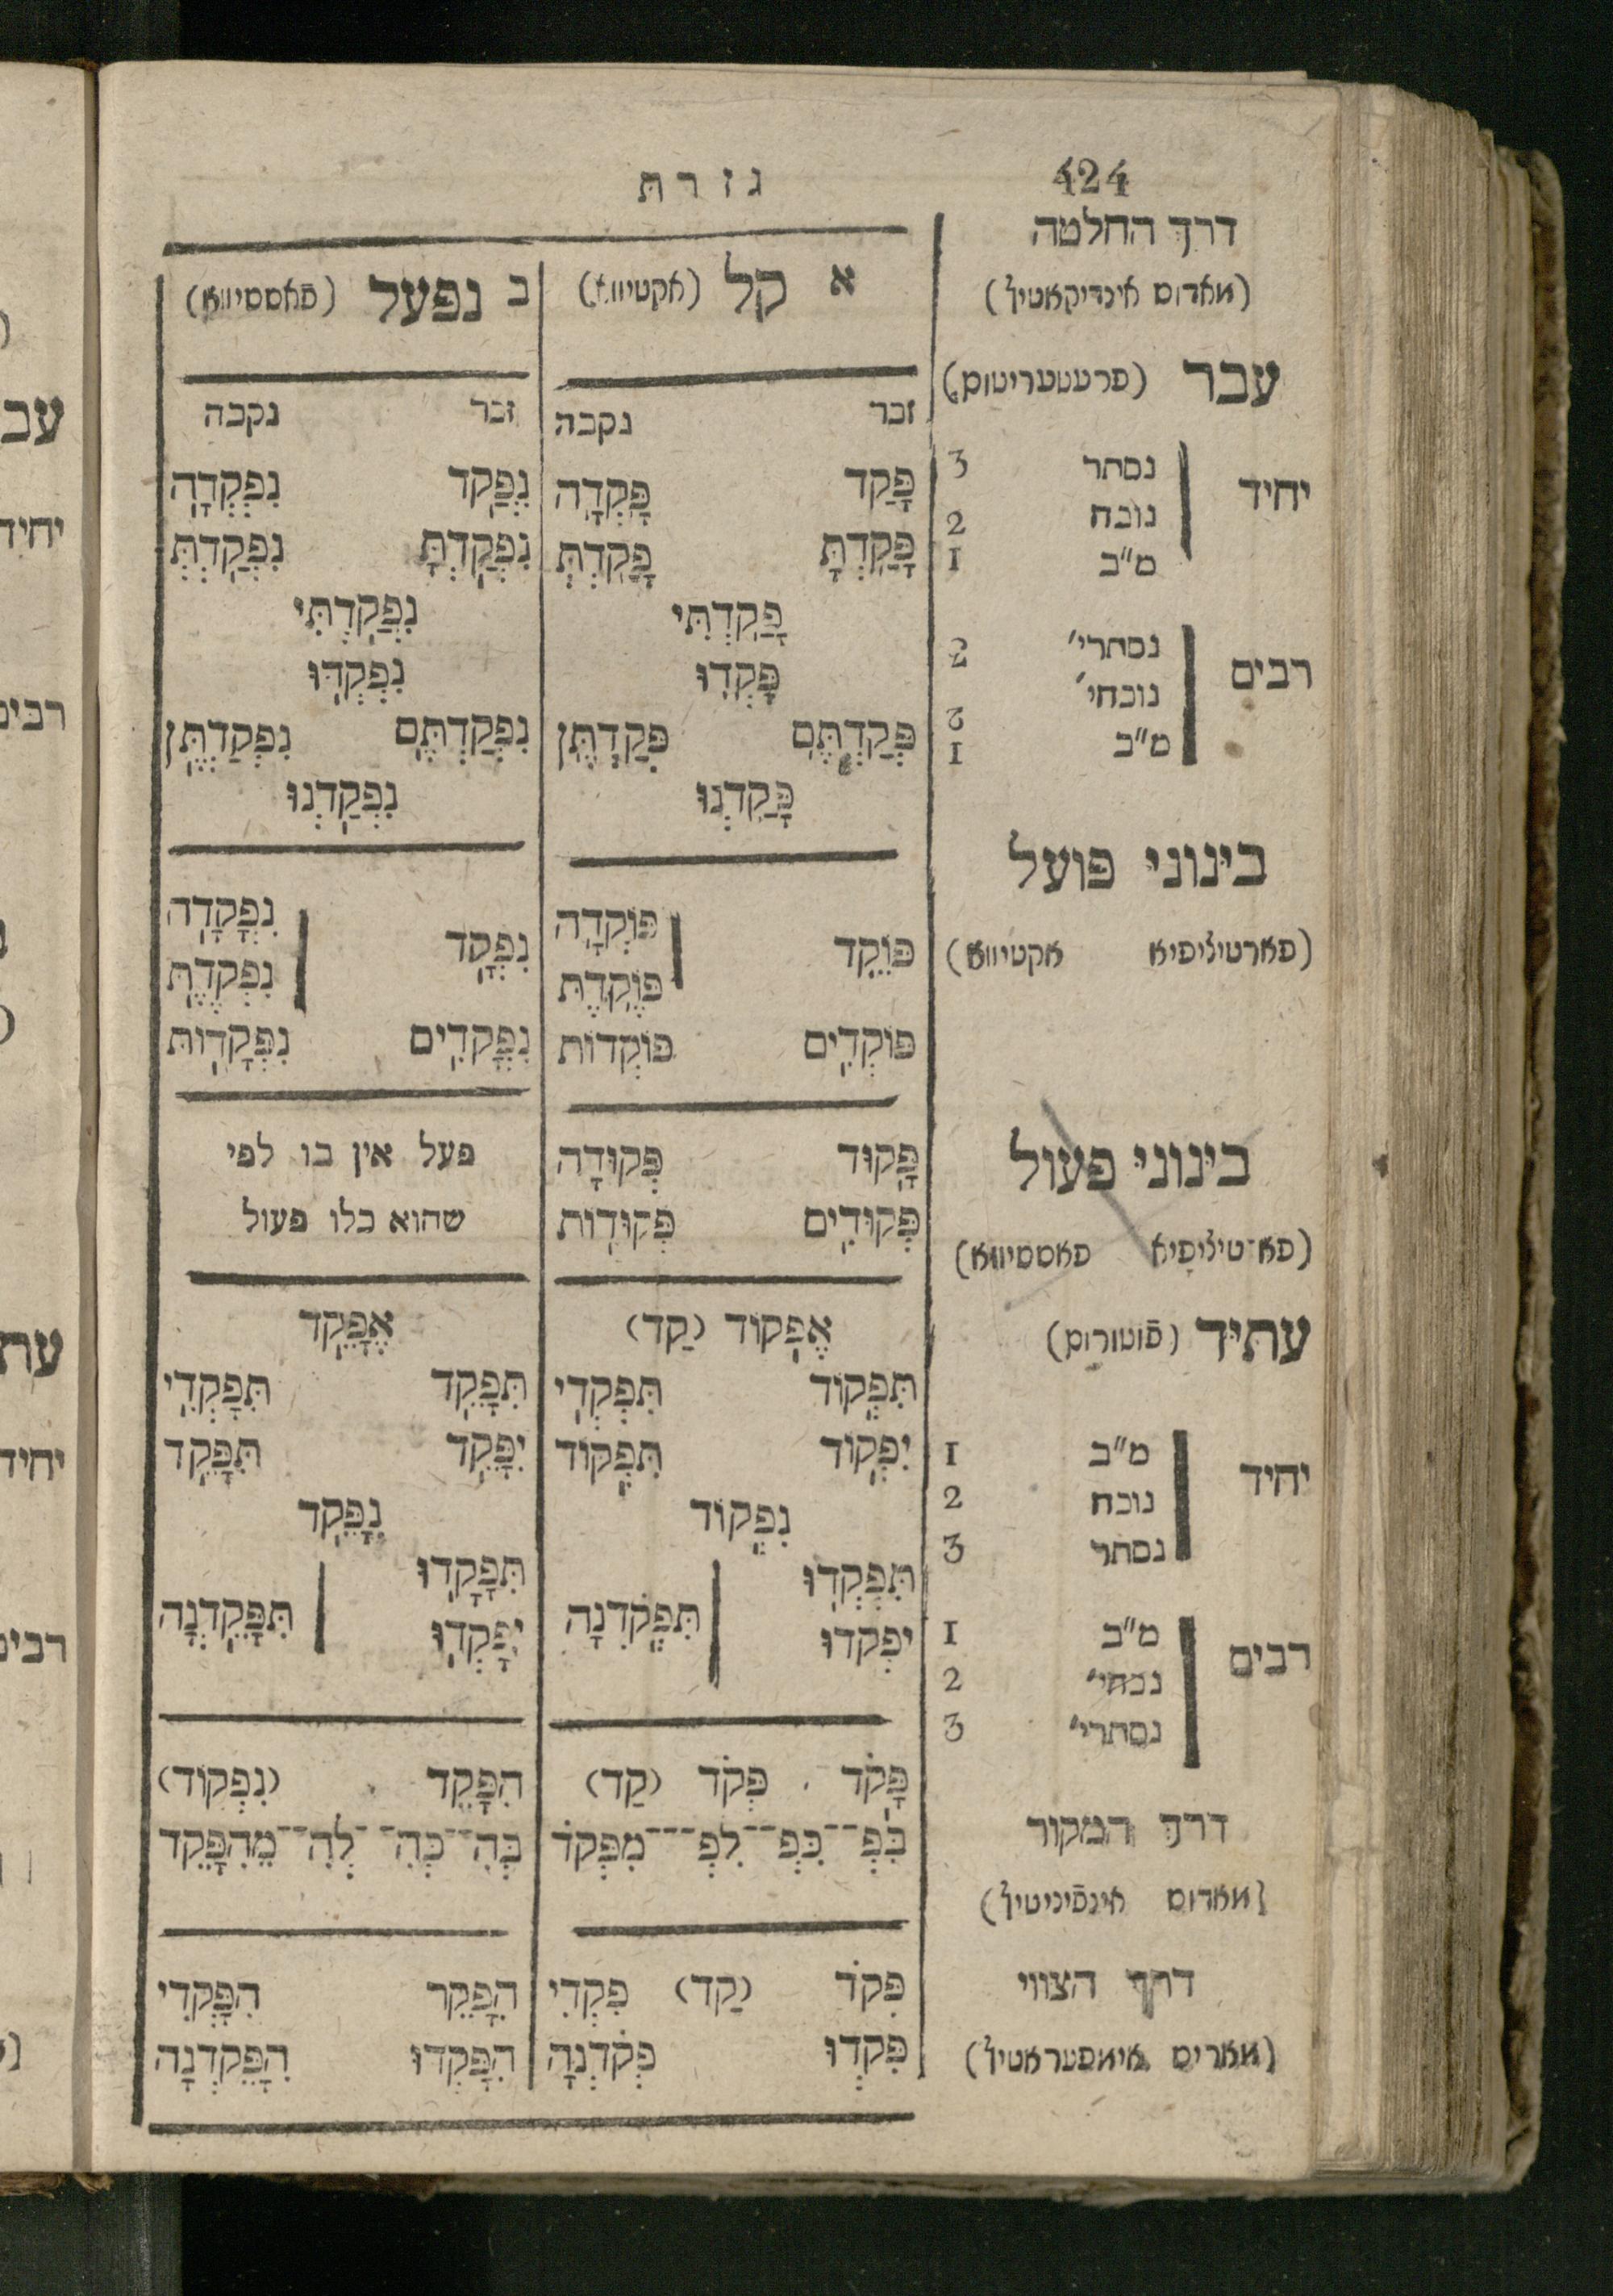 424
גזרת
דרך החלטה
א קל (אקטיווא)
ב נפעל (פאססיווא)
(מאדוס אינדיקאטיף)
עבר (פרעטעריטום)
זכר נקבה זכר נקבה
יחיד
נסתר 3 פָּקַד פָּקְדָה נִפְקַד נִפְקְדָה
נוכח 2 פָּקַדְתָּ פָּקַדְתְּ נִפְקַדְתָּ נִפְקַדְתְּ
מ"ב 1 פָּקַדְתִּי נִפְקַדְתִּי
רבים
נסתרי' 2 פָּקְדוּ נִפְקְדוּ
נוכחי' פְּקַדְתֶּם פְּקַדְתֶּן נִפְקַדְתֶּם נִפְקַדְתֶּן
מ"ב 1 פָּקַדְנוּ נִפְקַדְנוּ
בינוני פועל
(פארטיציפיא אקטיווא)
פּוֹקֵד פּוֹקְדָה נִפְקָד נִפְקָדָה
פּוֹקֶדֶת נִפְקֶדֶת
פּוֹקְדִים פּוֹקְדוֹת נִפְקָדִים נִפְקָדוֹת
בינוני פעול
פָּקוּד פְּקוּדָה פעל אין בו לפי
פְּקוּדִים פְּקוּדוֹת שהוא כלו פעול
(פא־טיציפיא פאססיווא)
עתיד (פוטורום)
אֶפְקוֹד (קַד) אֶפָּקֵד
תִּפְקוֹד תִּפְקְדִי תִּפָּקֵד תִּפָּקְדִי
יִפְקוֹד תִּפְקוֹד יִפָּקֵד תִּפָּקֵד
נִפְקוֹד נִפָּקֵד
תִּפְקְדוּ תִּפָּקְדוּ
יִפְקְדוּ תִּפְקֹדְנָה יִפָּקְדוּ תִּפָּקֵדְנָה
יחיד
מ"ב 1
נוכח 2
נסתר 3
רבים
מ"ב 1
נכחי' 2
נסתרי' 3
דרך המקור
פָּקֹד פְּקֹד (קַד) הִפָּקֵד (נִפְקוֹד)
בִּפְ־־ כִּפְ־־ לִפְ־־־ מִפְּקֹד בְּהִ־־ כְּהִ־־ לְהִ־־ מֵהִפָּקֵד
(מאדוס אינפיניטיף)
דרך הצווי
פְּקֹד (קַד) פִּקְדִי הִפָּקֵר הִפָּקְדִי
פִּקְדוּ פְּקֹדְנָה הִפָּקְדוּ הִפָּקֵדְנָה
(מאריס אימפעראטיף)